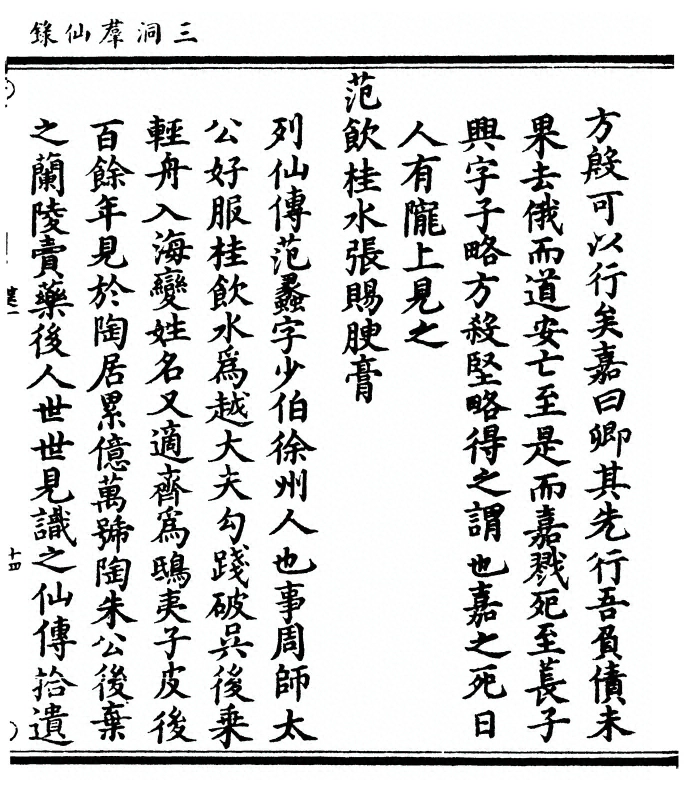 三洞羣仙錄
方殷可以行矣嘉曰卿其先行吾負債未
果去俄而道安亡至是而嘉戮死至萇子
興字子略方殺堅略得之謂也嘉之死日
人有隴上見之
范飲桂水張賜腴膏
列仙傳范蠡字少伯徐州人也事周師太
公好服桂飲水爲越大夫勾踐破吳後乗
輕舟入海變姓名又適齊爲鴟夷子皮後
百餘年見於陶居累億萬號陶朱公後棄
之蘭陵賣藥後人世世見識之仙傳拾遺
十四